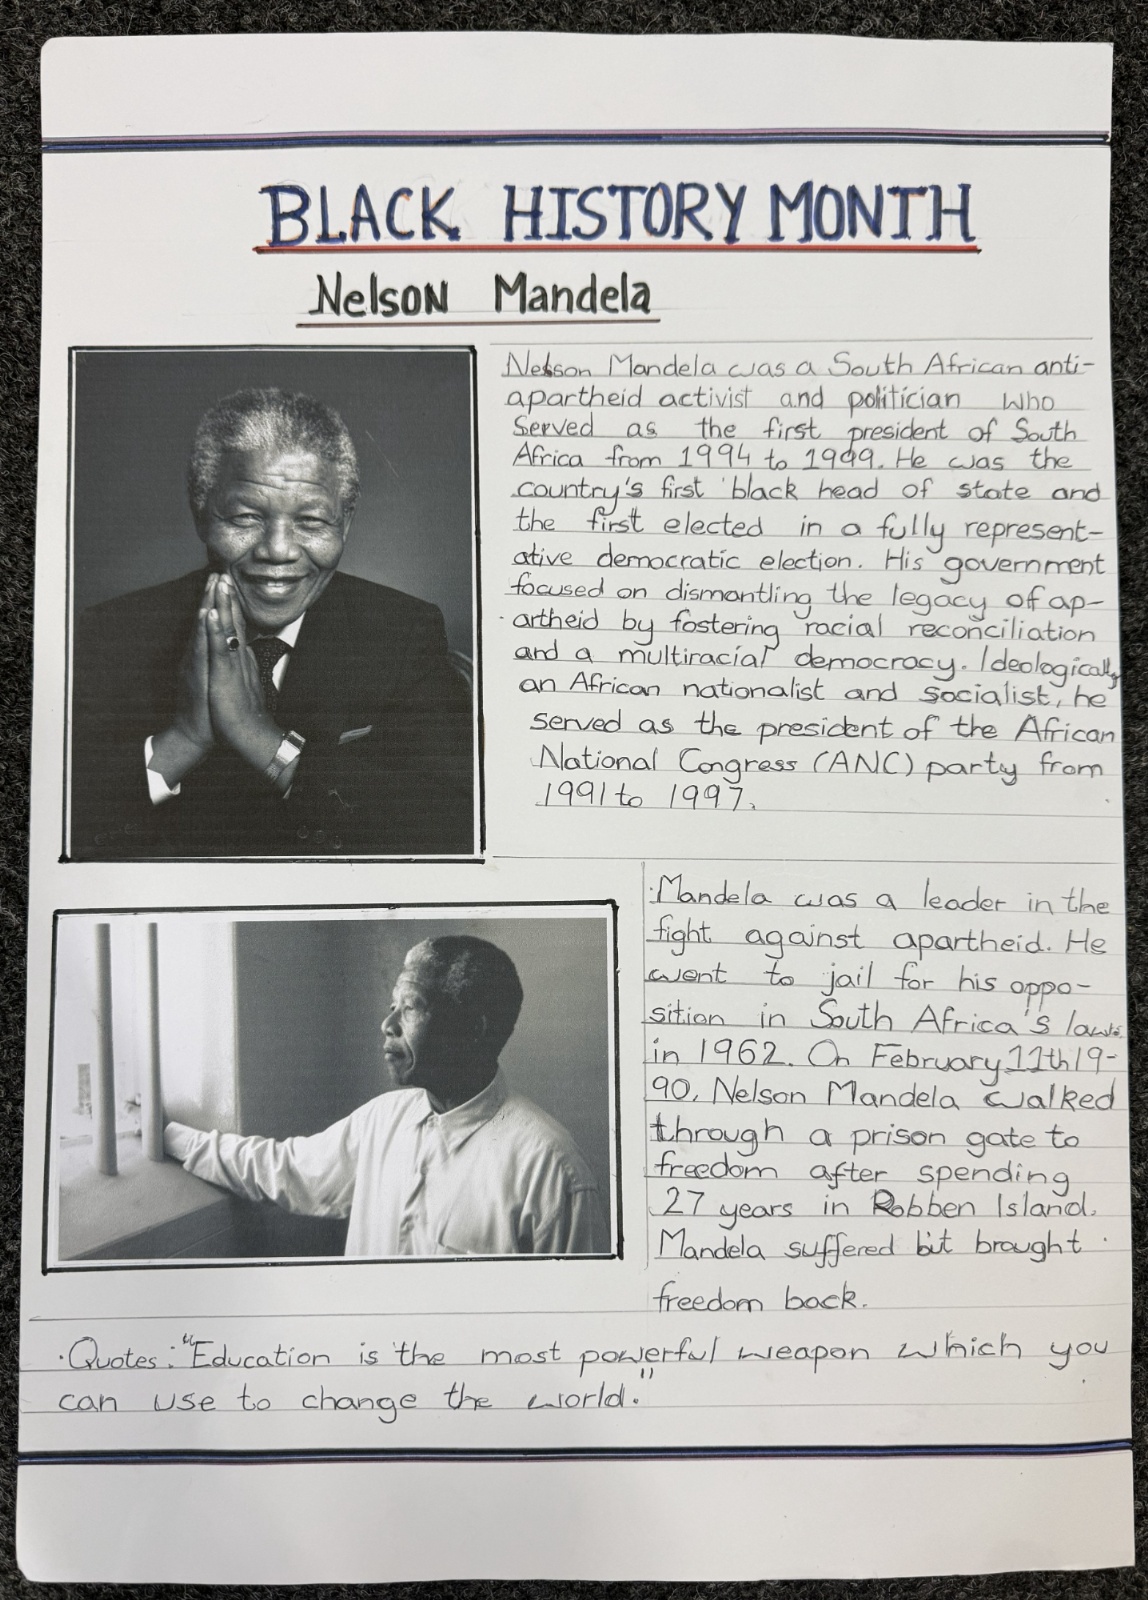 BLACK HISTORY MONTH
Nelson Mandela
Nelson Mandela was a South African anti-
apartheid activist and politician who
served as the first president of South
Africa from 1994 to 1999. He was the
country's first black head of state and
the first elected in a fully represent-
ative democratic election. His government
focused on dismantling the legacy of ap-
artheid by fostering racial reconciliation
and a multiracial democracy. Ideologically
an African nationalist and socialist, he
served as the president of the African
National Congress (ANC) party from
1991 to 1997.
Mandela was a leader in the
fight against apartheid. He
went to jail for his oppo-
sition in South Africa's laws
in 1962. On February 11th 19-
90, Nelson Mandela walked
through a prison gate to
freedom after spending
27 years in Robben Island.
Mandela suffered but brought
freedom back.
Quotes: "Education is the most powerful weapon which you
can use to change the world."